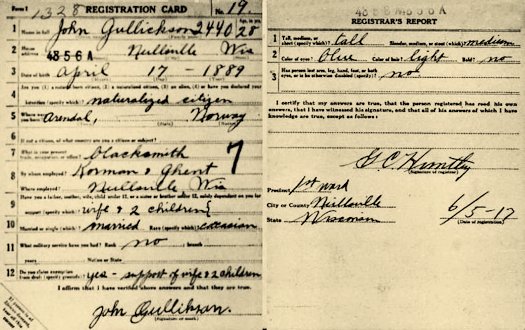 Form 1 1328 REGISTRATION CARD No. 19
1 Name in full John Gullickson 2440 28
Age, in yrs.
2 Home address Neillsville Wis
4856 A
3 Date of birth April 17 - 1889
(Month) (Day) (Year)
4 Are you (1) a natural born citizen, (2) a naturalized citizen, (3) an alien, (4) or have you declared your
intention (specify which)? naturalized citizen
5 Where were you born? Arendal, Norway
(Town) (State) (Nation)
6 If not a citizen, of what country are you a citizen or subject?
7 What is your present trade, occupation, or office? blacksmith 7
8 By whom employed? Korman & Ghent
Where employed? Neillsville Wis
9 Have you a father, mother, wife, child under 12, or a sister or brother under 12, solely dependent on you for
support (specify which)? wife & 2 children
10 Married or single (which)? married Race (specify which)? Caucasian
11 What military service have you had? Rank no branch
years Nation or State
12 Do you claim exemption from draft (specify grounds)? yes - support of wife & 2 children
I affirm that I have verified above answers and that they are true.
John Gullikson.
(Signature or mark)
48 5 6 A
REGISTRAR'S REPORT
1 Tall, medium, or short (specify which)? tall Slender, medium, or stout (which)? medium
2 Color of eyes? blue Color of hair? light Bald? no
3 Has person lost arm, leg, hand, foot, or both eyes, or is he otherwise disabled (specify)? no
I certify that my answers are true, that the person registered has read his own
answers, that I have witnessed his signature, and that all of his answers of which I have
knowledge are true, except as follows:
(Signature of registrar)
Precinct 1st ward
City or County Neillsville 6/5-17
State Wisconsin (Date of registration)